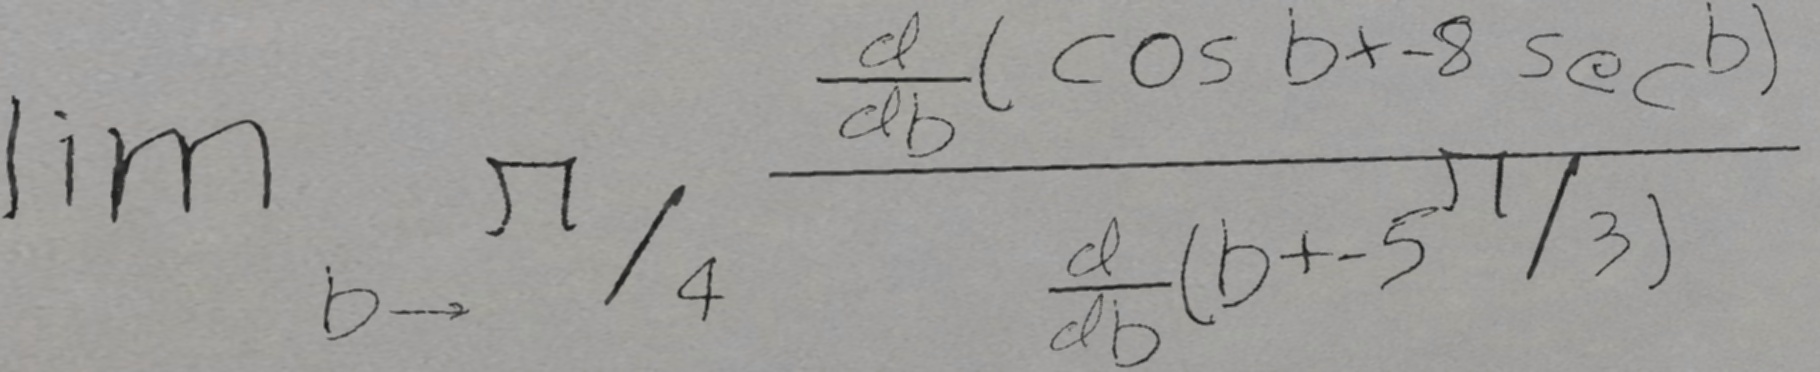 lim_{b→π/4} \frac{\frac{d}{db}(cos b+-8 sec b)}{\frac{d}{db}(b+-5π/3)}